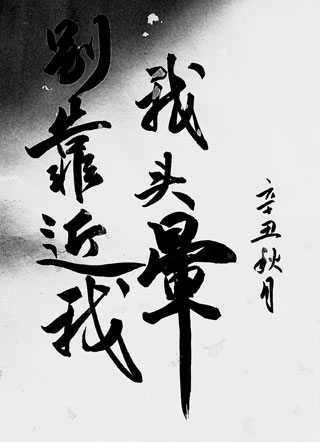 辛丑秋月
我头晕
别靠近我